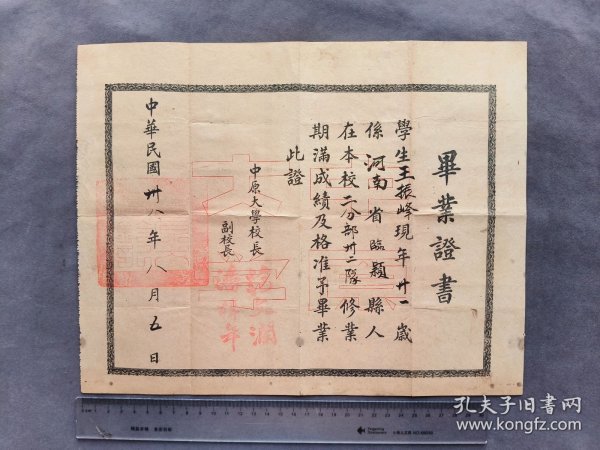 畢業證書
學生王振峰現年廿一歲
係河南省臨穎縣人
在本校二分部卅二隊修業
期滿成績及格准予畢業
此證
中原大學校長
副校長
潘梓年
中華民國卅八年八月五日
孔夫子旧书网
kongfz.com